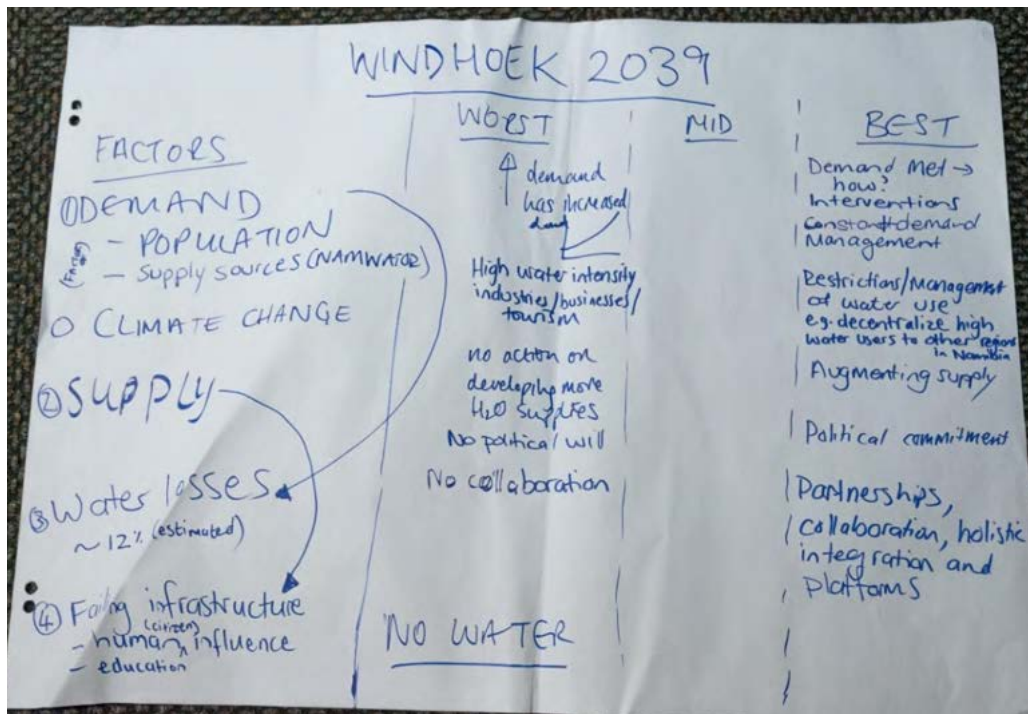 WINDHOEK 2039
FACTORS
① DEMAND
- POPULATION
- Supply sources (NAMWATER)
O CLIMATE CHANGE
② SUPPLY
③ Water losses
~ 12% (estimated)
④ Failing infrastructure
(citizen)
- human influence
- education
WORST
↑ demand
has increased
High water intensity
industries/businesses/
tourism
no action on
developing more
H2O supplies
No political will
No collaboration
NO WATER
MID
BEST
Demand Met →
how?
Interventions
Constant demand
Management
Restrictions/Management
of water use
e.g. decentralize high
water users to other regions
in Namibia
Augmenting supply
Political commitment
Partnerships,
collaboration, holistic
integration and
platforms